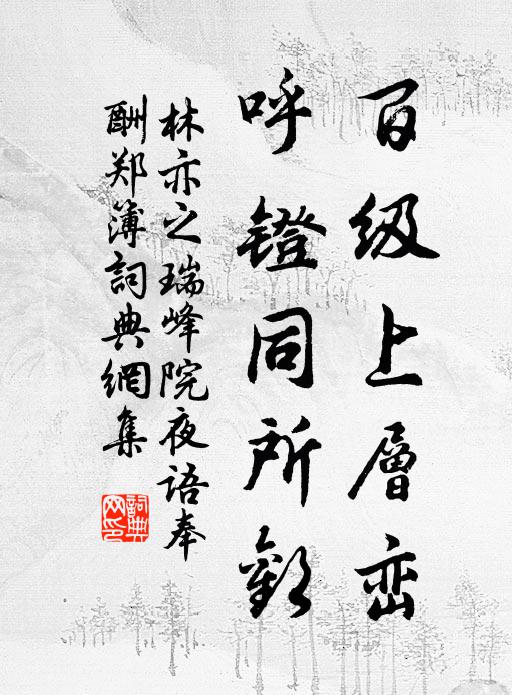 百级上層峦
呼镫同所歡
林亦之瑞峰院夜语奉
酬郑簿詞典網集
詞典
网印